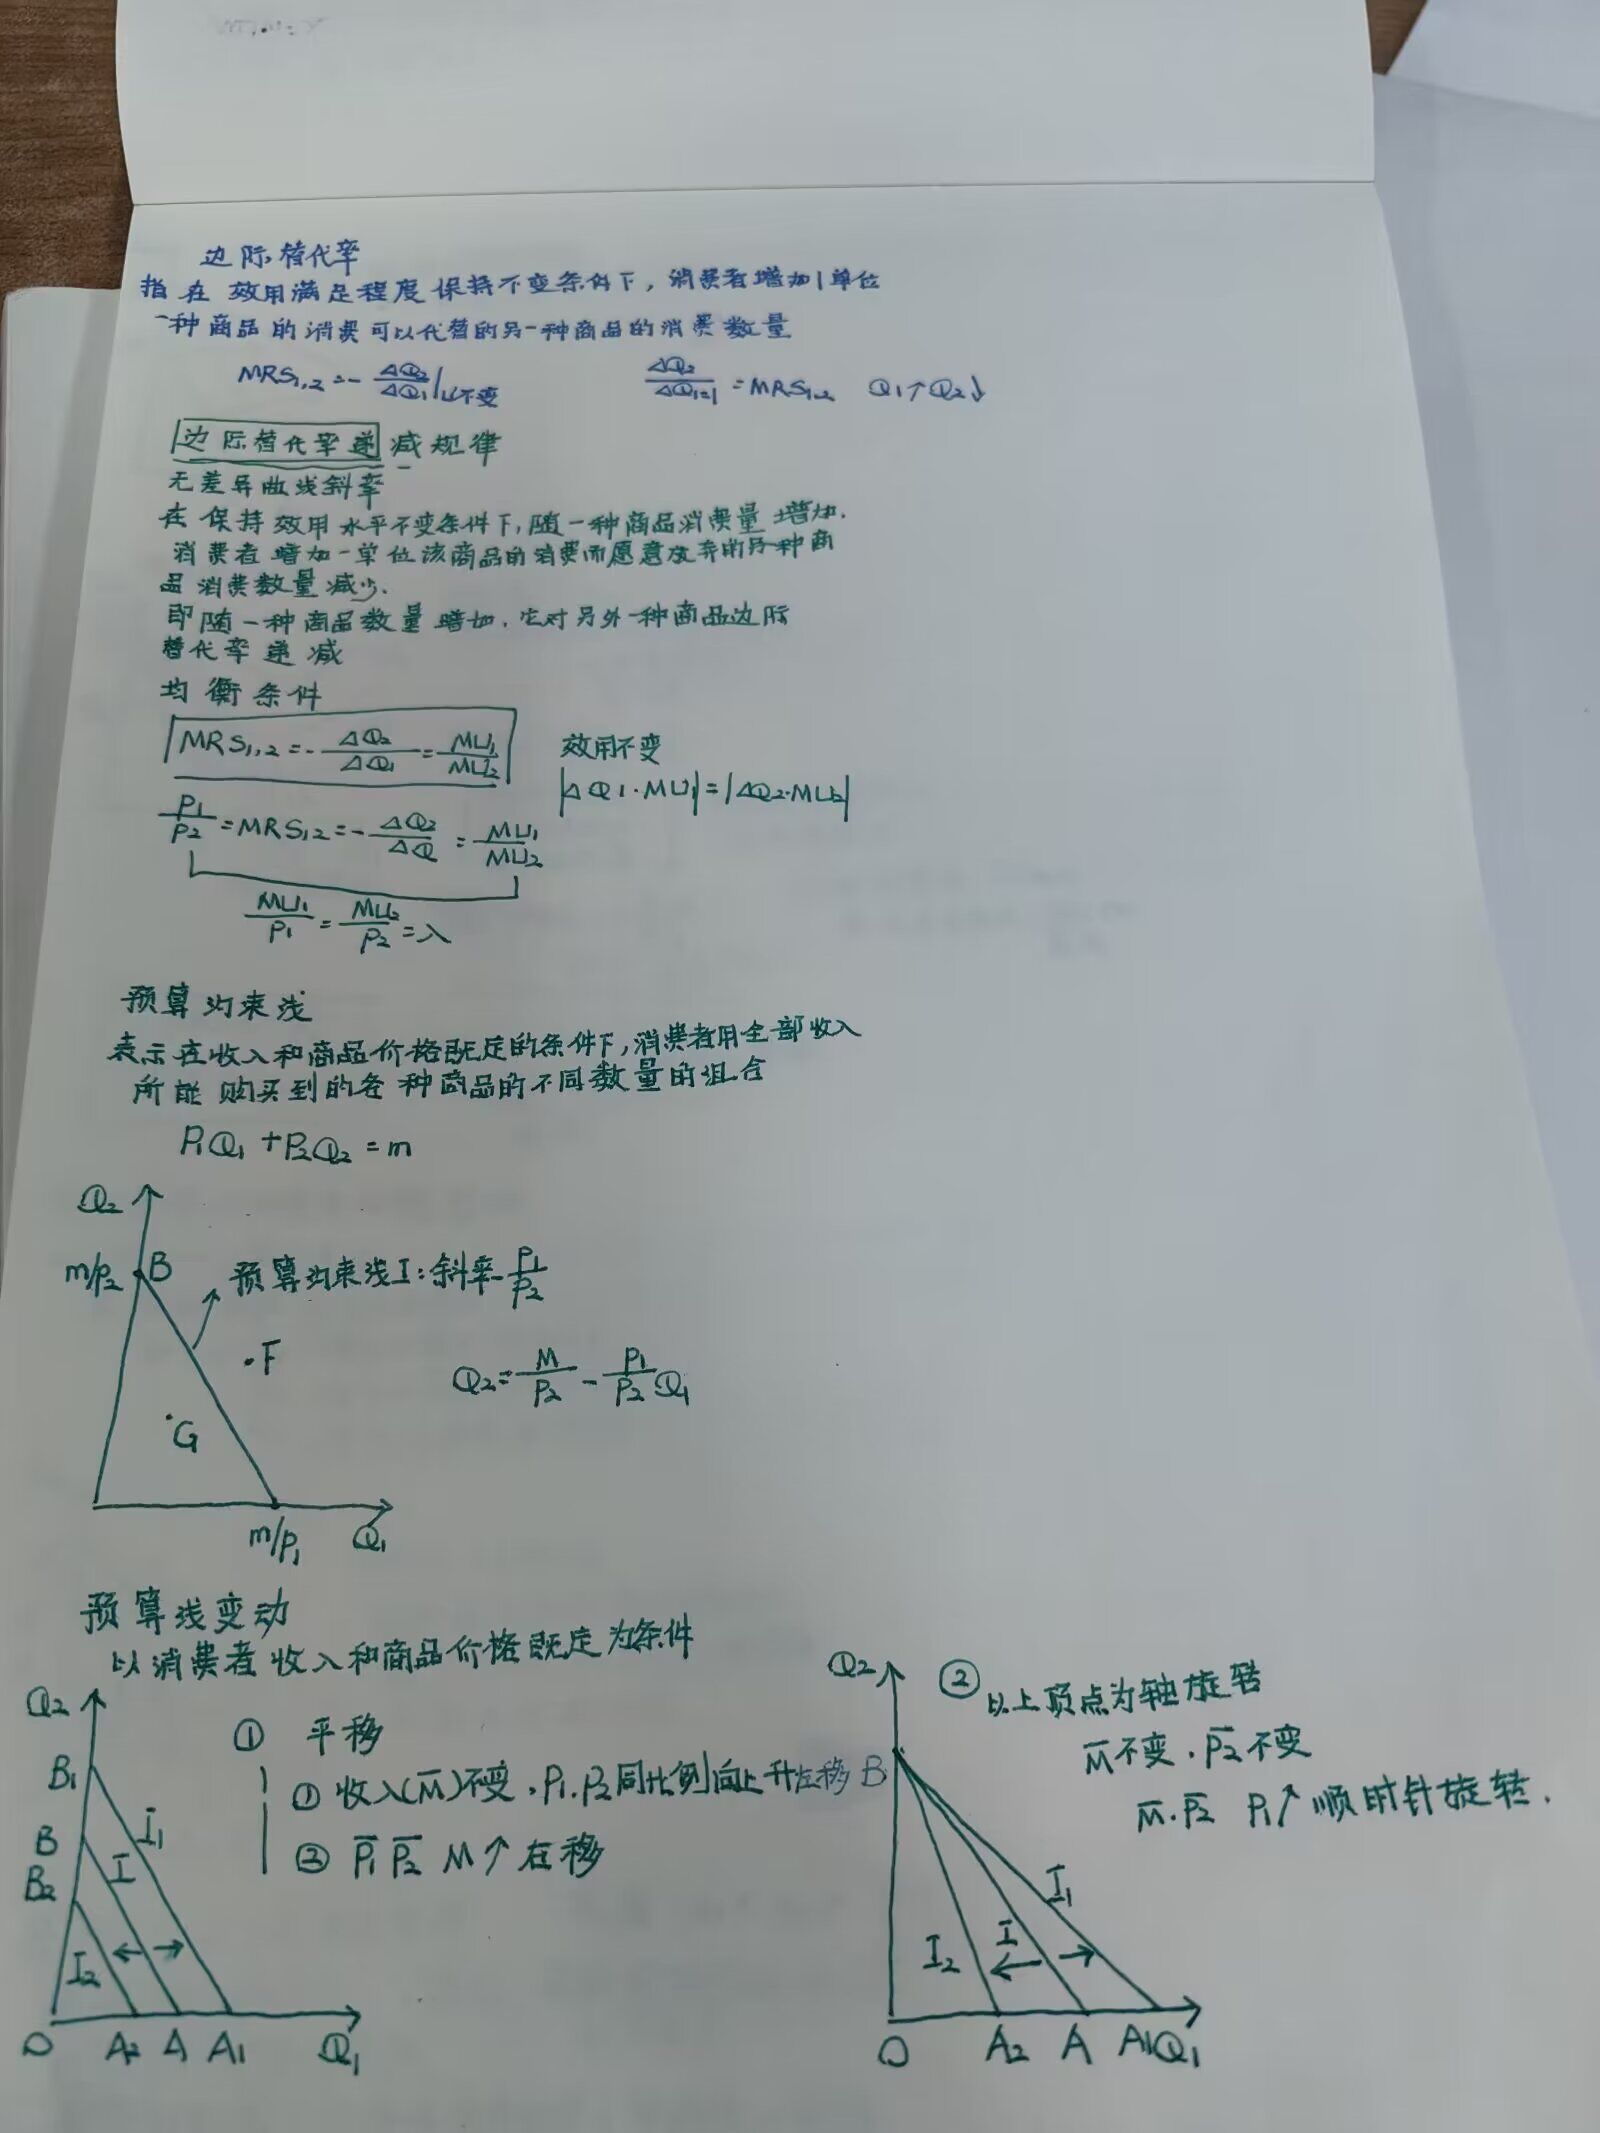 边际替代率
指在效用满足程度保持不变条件下，消费者增加1单位
一种商品的消费可以代替的另一种商品的消费数量
MRS1,2=-ΔQ2/ΔQ1|U不变 ΔQ2/ΔQ1=1=MRS1,2 Q1↑Q2↓
边际替代率递减规律
无差异曲线斜率
在保持效用水平不变条件下,随一种商品消费量增加.
消费者增加一单位该商品的消费而愿意放弃的另一种商
品消费数量减少.
即随一种商品数量增加,它对另外一种商品边际
替代率递减
均衡条件
MRS1,2=-ΔQ2/ΔQ1=MU1/MU2 效用不变
|ΔQ1·MU1|=|ΔQ2·MU2|
P1/P2=MRS1,2=-ΔQ2/ΔQ=MU1/MU2
MU1/P1=MU2/P2=λ
预算约束线
表示在收入和商品价格既定的条件下,消费者用全部收入
所能购买到的各种商品的不同数量的组合
P1Q1+P2Q2=m
Q2
m/p2 B 预算约束线I:斜率-P1/P2
F
Q2=M/P2-P1/P2Q1
G
m/p1 Q1
预算线变动
以消费者收入和商品价格既定为条件
Q2
① 平移
B1 I1
① 收入(M̅)不变,P1.P2同比例向上升左移
B I
② P̅1 P̅2 M↑右移
B2
I2
O A2 A A1 Q1
Q2 ② 以上顶点为轴旋转
M̅不变.P̅2不变
B
M̅.P̅2 P1↑顺时针旋转.
I1
I2 I
O A2 A A1 Q1